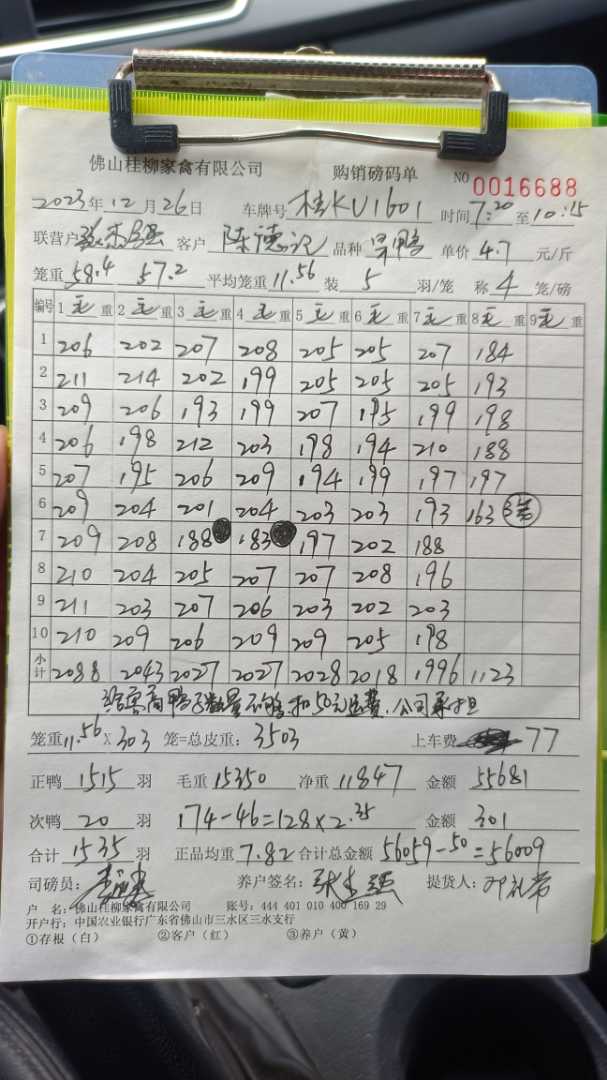 佛山桂柳家禽有限公司 购销磅码单 NO 0016688
2023年12月26日 车牌号 桂KU1601 时间7:20至10:15
联营户 客户 陈德记 品种 鸭 单价 4.7 元/斤
笼重 58.4 57.2 平均笼重 11.56 装 5 羽/笼 称 4 笼/磅
编号 1 毛 重 2 毛 重 3 毛 重 4 毛 重 5 毛 重 6 毛 重 7 毛 重 8 毛 重 9 毛 重
1 206 202 207 208 205 205 207 184
2 211 214 202 199 205 205 205 193
3 209 206 193 199 207 195 199 198
4 206 198 212 203 198 194 210 188
5 207 195 206 209 194 199 197 197
6 209 204 201 204 203 203 193 163
7 209 208 188 183 197 202 188
8 210 204 205 207 207 208 196
9 211 203 207 206 203 202 203
10 210 209 206 209 209 205 198
小计 2088 2043 2027 2027 2028 2018 1996 1123
给客商鸭子数量不够扣50元运费.公司承担
笼重 11.56 X 303 笼=总皮重: 3503 上车费 77
正鸭 1515 羽 毛重 15350 净重 11847 金额 55681
次鸭 20 羽 174-46=128×2.35 金额 301
合计 1535 羽 正品均重 7.82 合计总金额 56059-50=56009
司磅员: 养户签名: 提货人:
户 名:佛山桂柳家禽有限公司 账号: 444 401 010 400 169 29
开户行: 中国农业银行广东省佛山市三水区三水支行
①存根(白) ②客户(红) ③养户(黄)